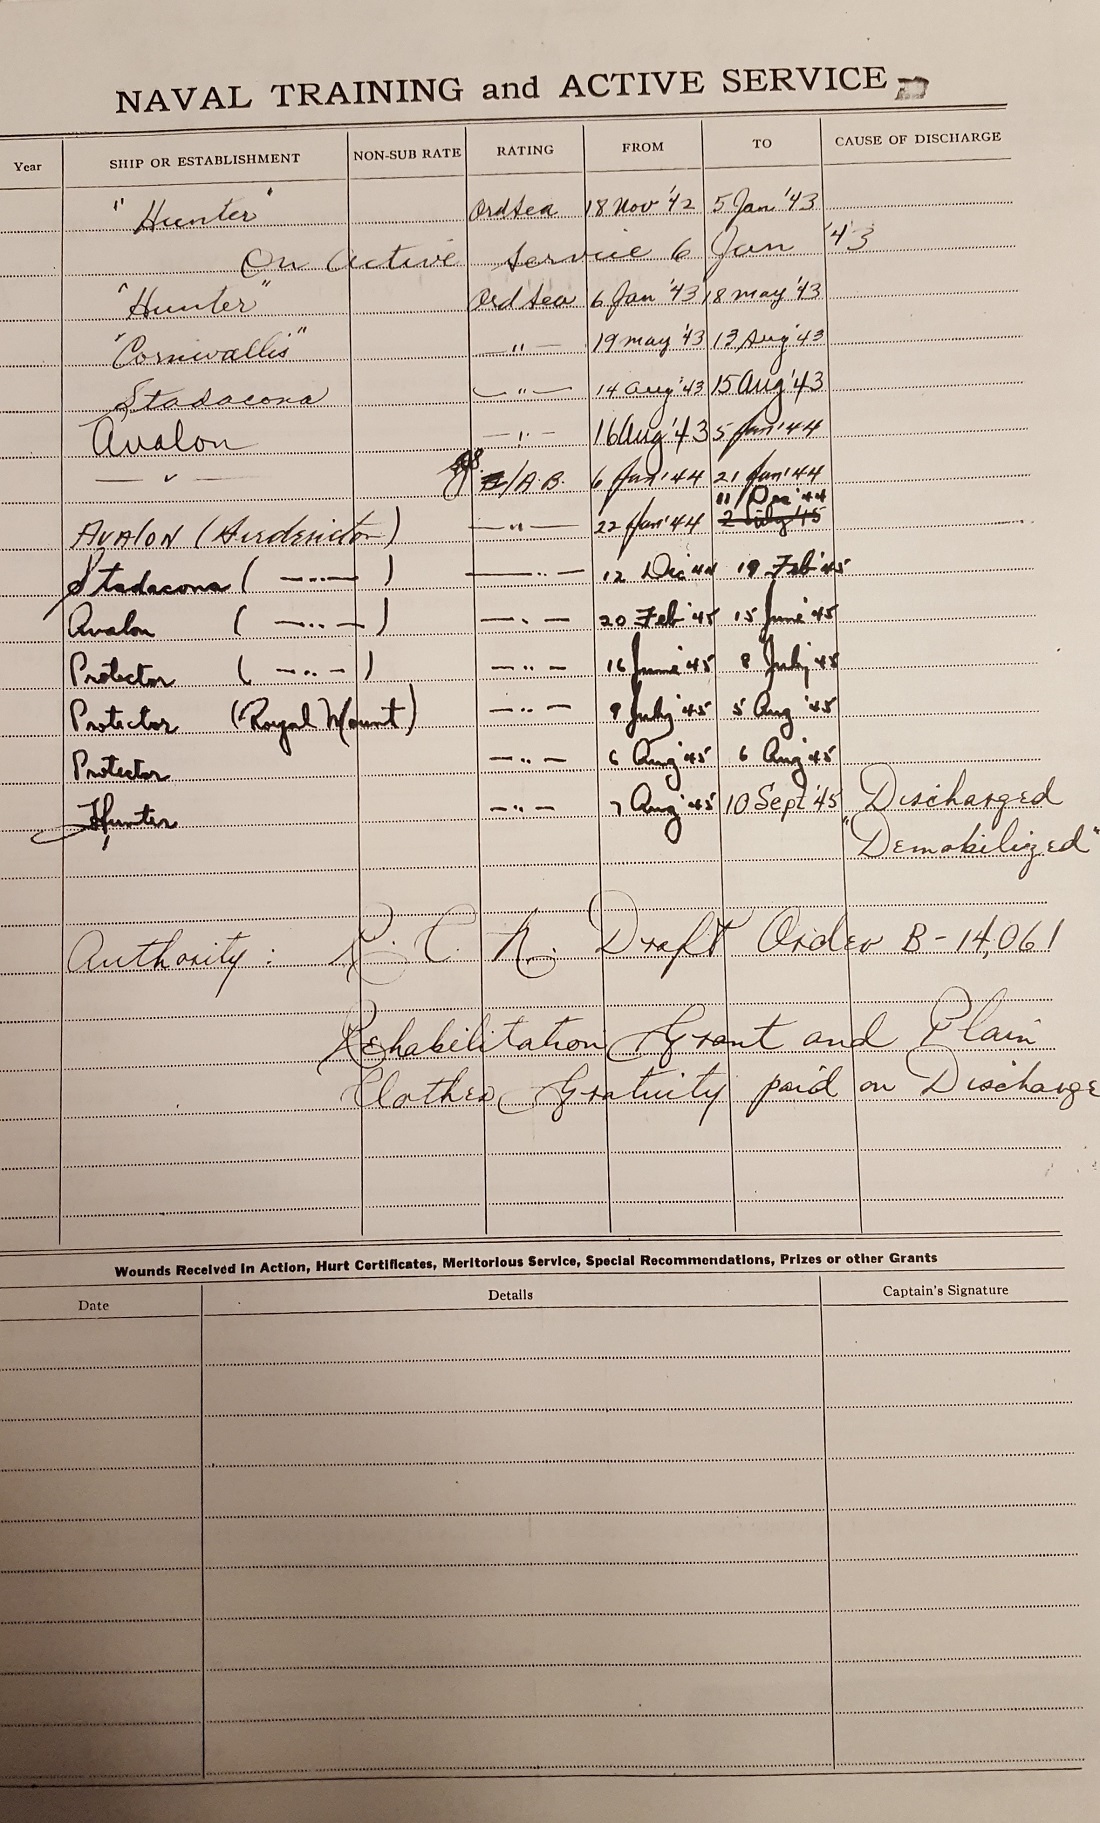 NAVAL TRAINING and ACTIVE SERVICE
Year SHIP OR ESTABLISHMENT NON-SUB RATE RATING FROM TO CAUSE OF DISCHARGE
"Hunter" Ord Sea 18 Nov '42 5 Jan '43
On Active Service 6 Jan '43
"Hunter" Ord Sea 6 Jan '43 18 may '43
"Cornwallis" — " — 19 may '43 13 Aug '43
Stadacona — " — 14 Aug '43 15 Aug '43
Avalon — " — 16 Aug '43 5 Jan '44
— " — /A.B. 6 Jan '44 21 Jan '44
11 Dec '44
AVALON (Fredericton) — " — 22 Jan '44 2 July '45
Stadacona ( — " — ) — " — 12 Dec '44 19 Feb '45
Avalon ( — " — ) — " — 20 Feb '45 15 June '45
Protector ( — " — ) — " — 16 June '45 8 July '45
Protector (Royal Mount) — " — 9 July '45 5 Aug '45
Protector — " — 6 Aug '45 6 Aug '45
Hunter — " — 7 Aug '45 10 Sept '45 Discharged
"Demobilized"
Authority: R. C. N. Draft Order B-14,061
Rehabilitation Grant and Plain
Clothes Gratuity paid on Discharge
Wounds Received in Action, Hurt Certificates, Meritorious Service, Special Recommendations, Prizes or other Grants
Date Details Captain's Signature